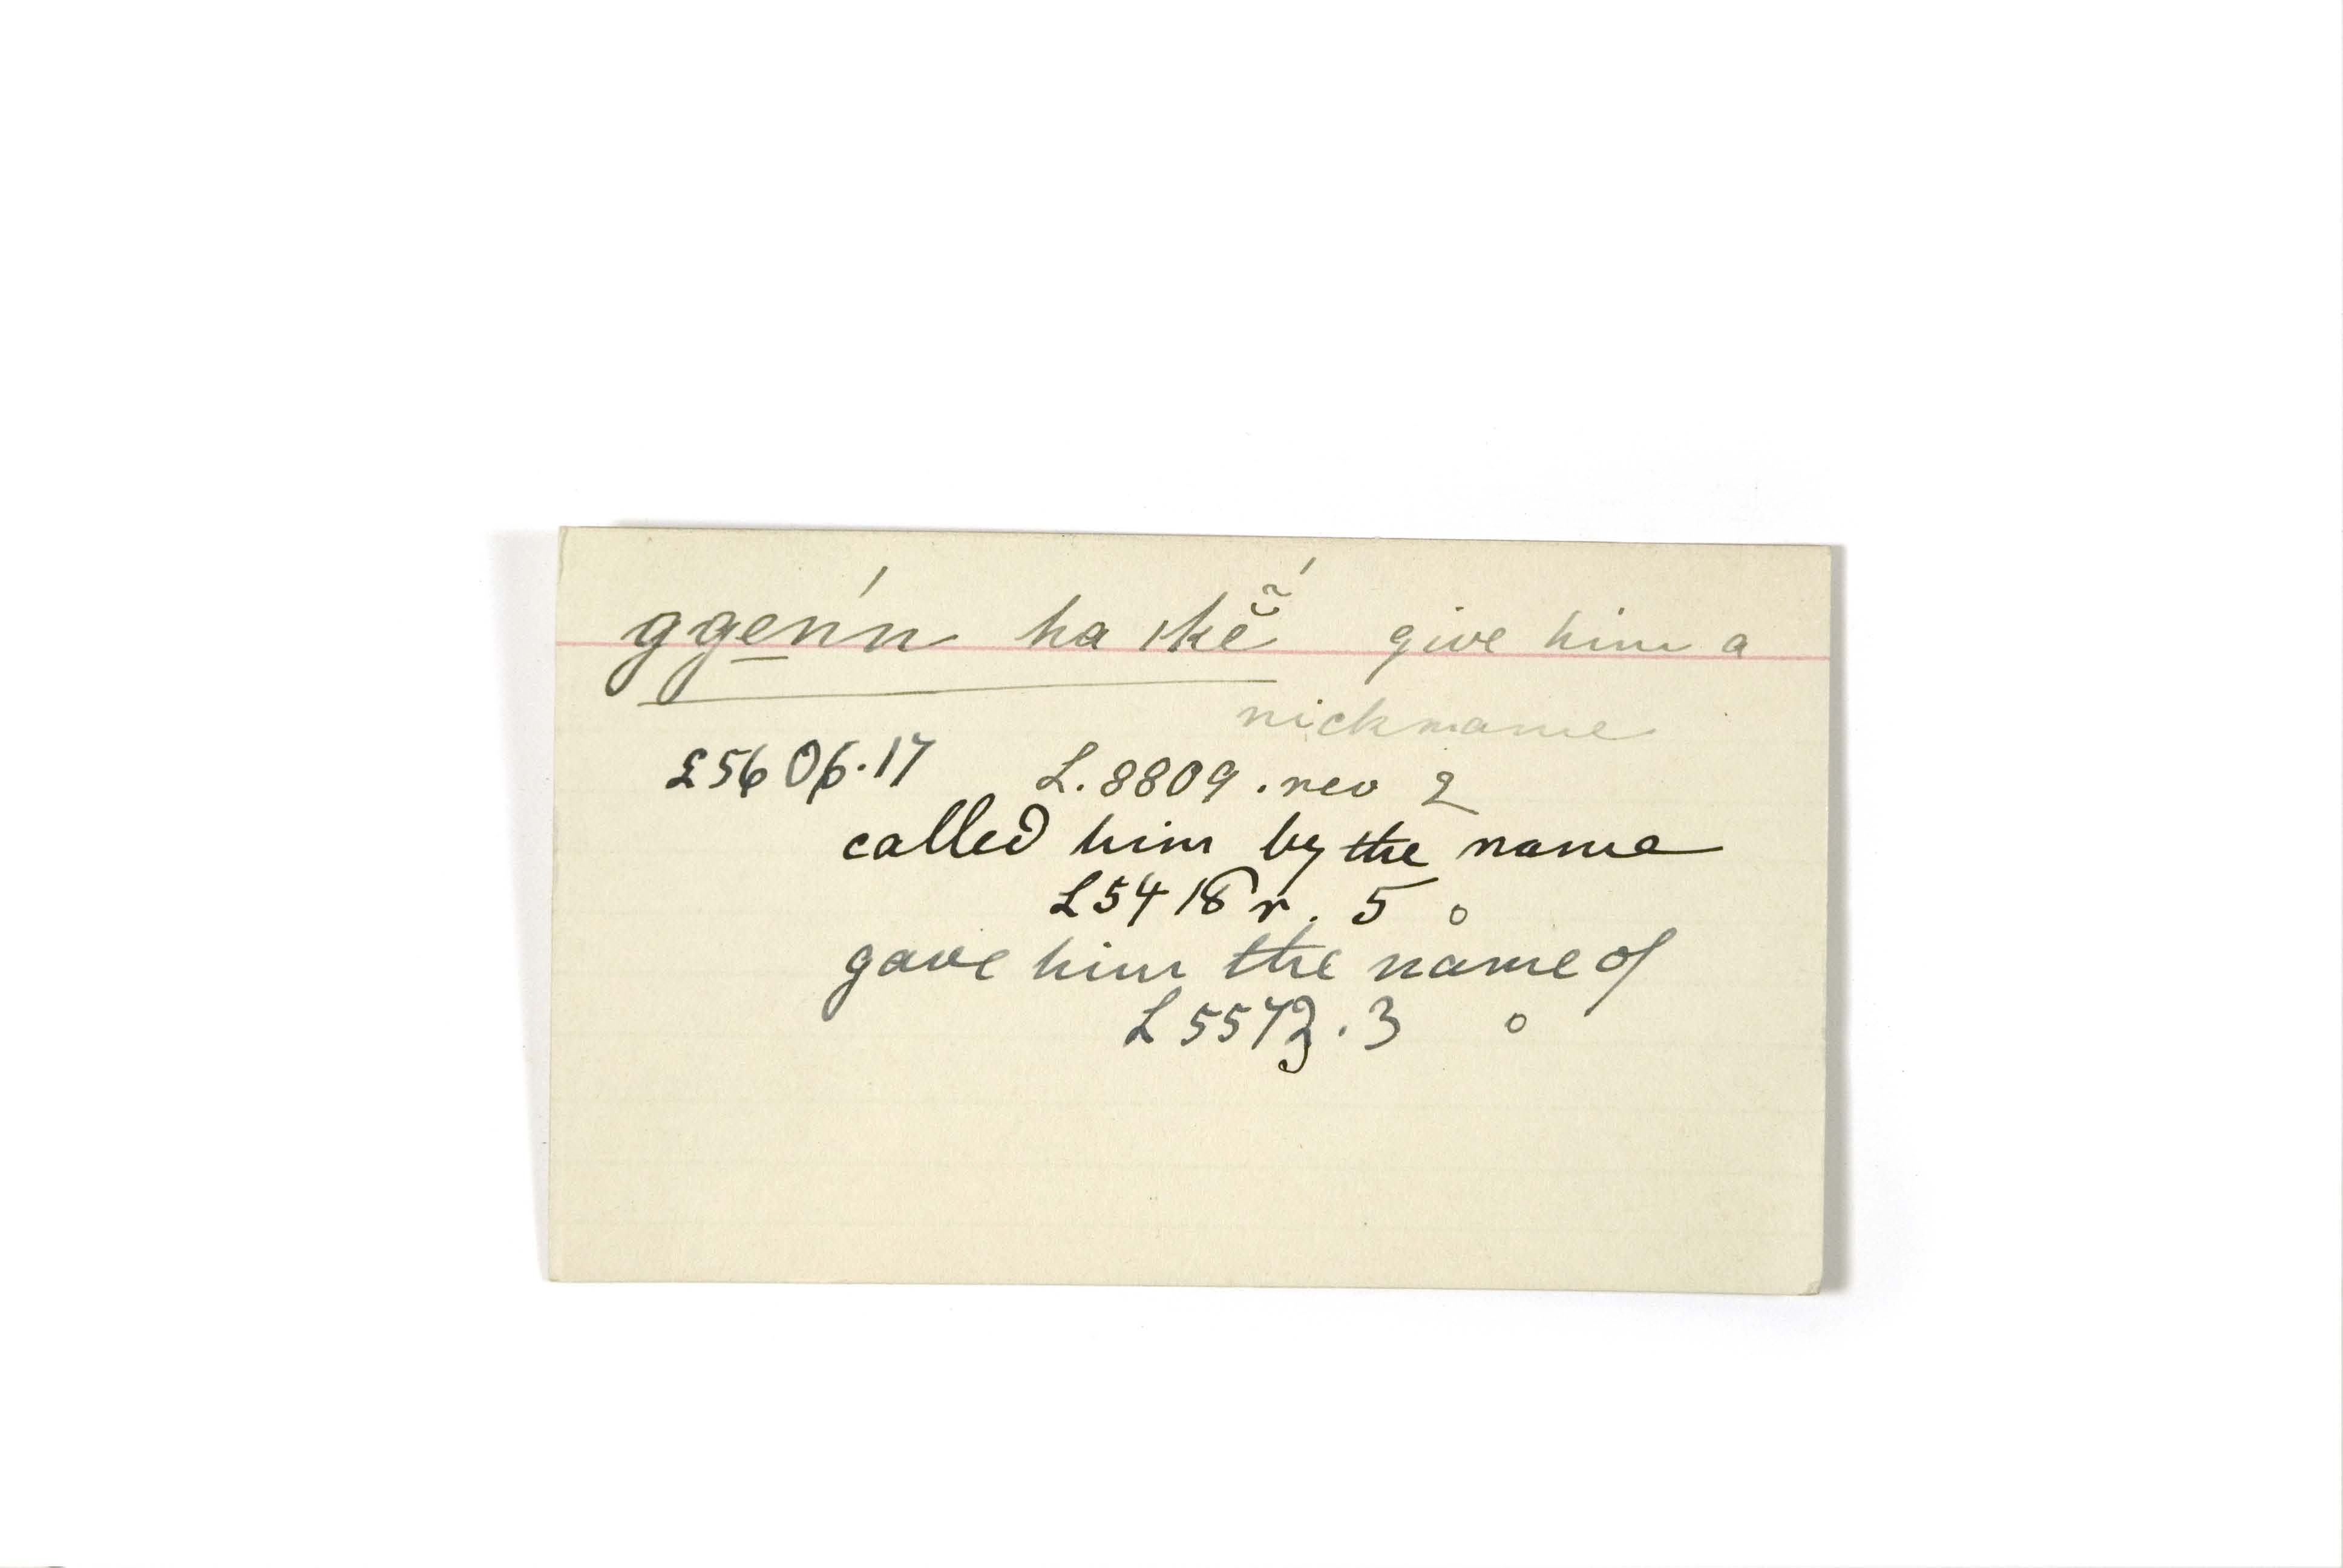 gge̱n´n ha ǀkẽ̆´ give him a
nickname
£5606.17 L.8809.rev 2
called him by the name
£5418 r. 5 o
gave him the name of
L 5573.3 o